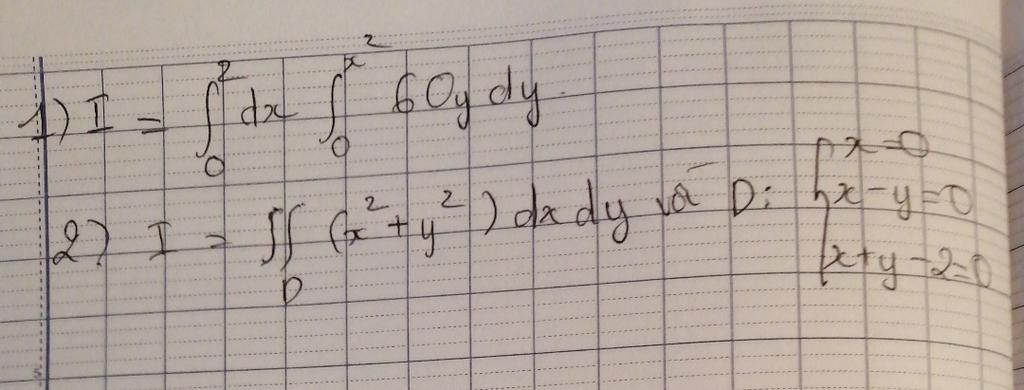 1) I = ∫₀² dx ∫₀^{x²} 60y dy.
2) I = ∬_D (x² + y²) dx dy và D: { x = 0
x - y = 0
x + y - 2 = 0